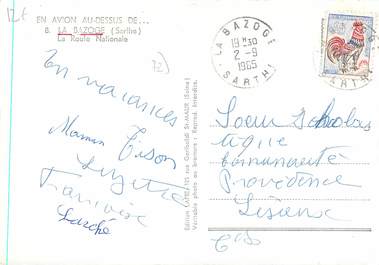 12f
EN AVION AU-DESSUS DE...
8. LA BAZOGE (Sarthe)
La Route Nationale
72)
LA BAZOGE
19 30
2 - 9
1965
SARTHE
En vacances
Maman
Suzette
Françoise
Edition LAPIE 125 rue Garibaldi St-MAUR (Seine)
Véritable photo au bromure - Reprod. Interdite.
Soeur
tique
Communauté
Providence
Lisieux